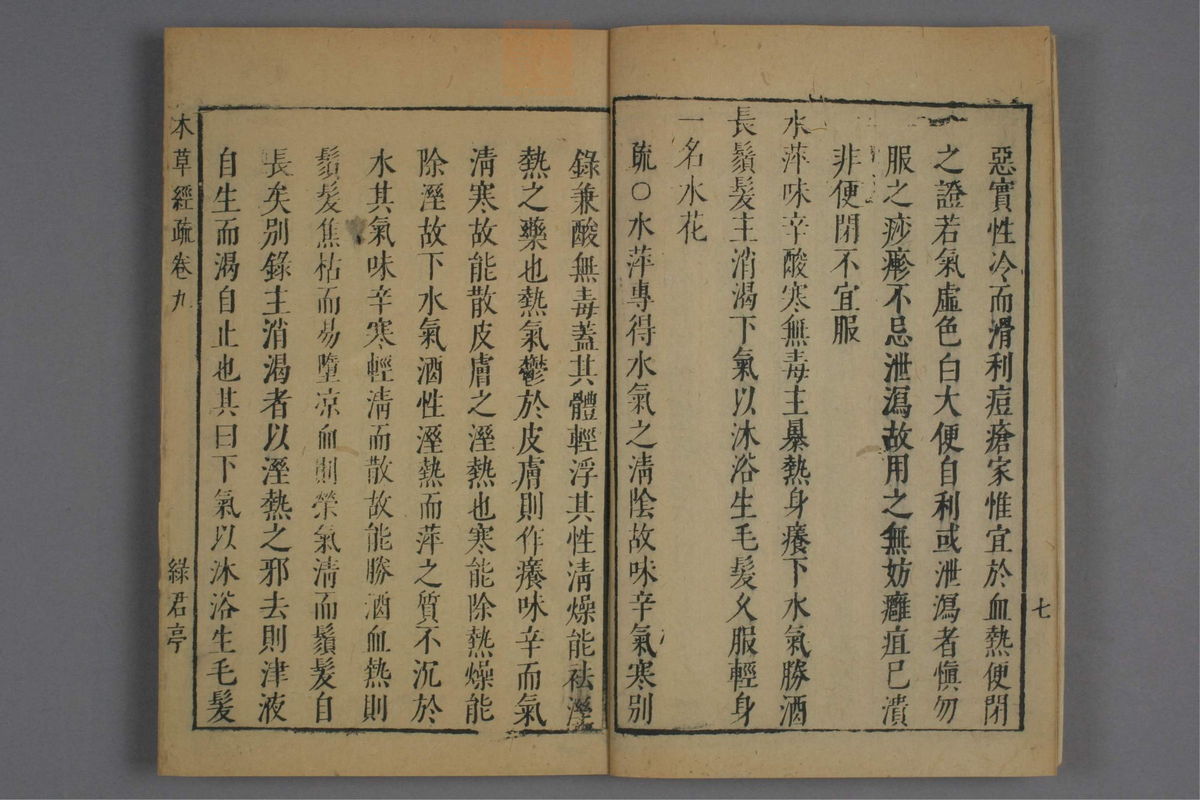 惡實性冷而滑利痘瘡家惟宜於血熱便閉
之證若氣虛色白大便自利或泄瀉者慎勿
服之痧疹不忌泄瀉故用之無妨癰疽已潰
非便閉不宜服
水萍味辛酸寒無毒主暴熱身癢下水氣勝酒
長鬚髮主消渴下氣以沐浴生毛髮久服輕身
一名水花
疏○水萍專得水氣之清陰故味辛氣寒別
七
錄兼酸無毒蓋其體輕浮其性清燥能祛溼
熱之藥也熱氣鬱於皮膚則作癢味辛而氣
清寒故能散皮膚之溼熱也寒能除熱燥能
除溼故下水氣酒性溼熱而萍之質不沉於
水其氣味辛寒輕清而散故能勝酒血熱則
鬚髮焦枯而易墮凉血則榮氣清而鬚髮自
長矣別錄主消渴者以溼熱之邪去則津液
自生而渴自止也其曰下氣以沐浴生毛髮
本草經疏卷九 綠君亭